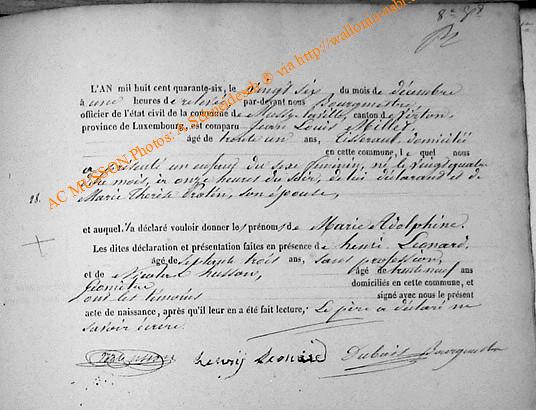 8e
L'AN mil huit cent quarante-six, le vingt six du mois de décembre
à une heures de relevée par-devant nous Bourgmestre,
officier de l'état civil de la commune de Mussy-la-ville, canton de Virton,
province de Luxembourg, est comparu Jean Louis Millet
âgé de trente un ans, tisserand, domicilié
en cette commune, le quel nous
a présenté un enfant du sexe féminin, né le vingt quatre
du mois, à onze heures du soir, de lui déclarant et de
28. Marie Thérèse son épouse,
et auquel il a déclaré vouloir donner les prénoms de Marie Adolphine.
Les dites déclaration et présentation faites en présence de henri Léonard,
âgé de septante trois ans, sans profession,
et de Nicolas husson, âgé de trente neuf ans
géomètre domiciliés en cette commune, et
ont les témoins signé avec nous le présent
acte de naissance, après qu'il leur en a été fait lecture, Le père a déclaré ne
savoir écrire.
henry Leonard Dubois Bourgmestre
AC MUSSON Photos: A. Schneidesch © via http://wallonia-asbl